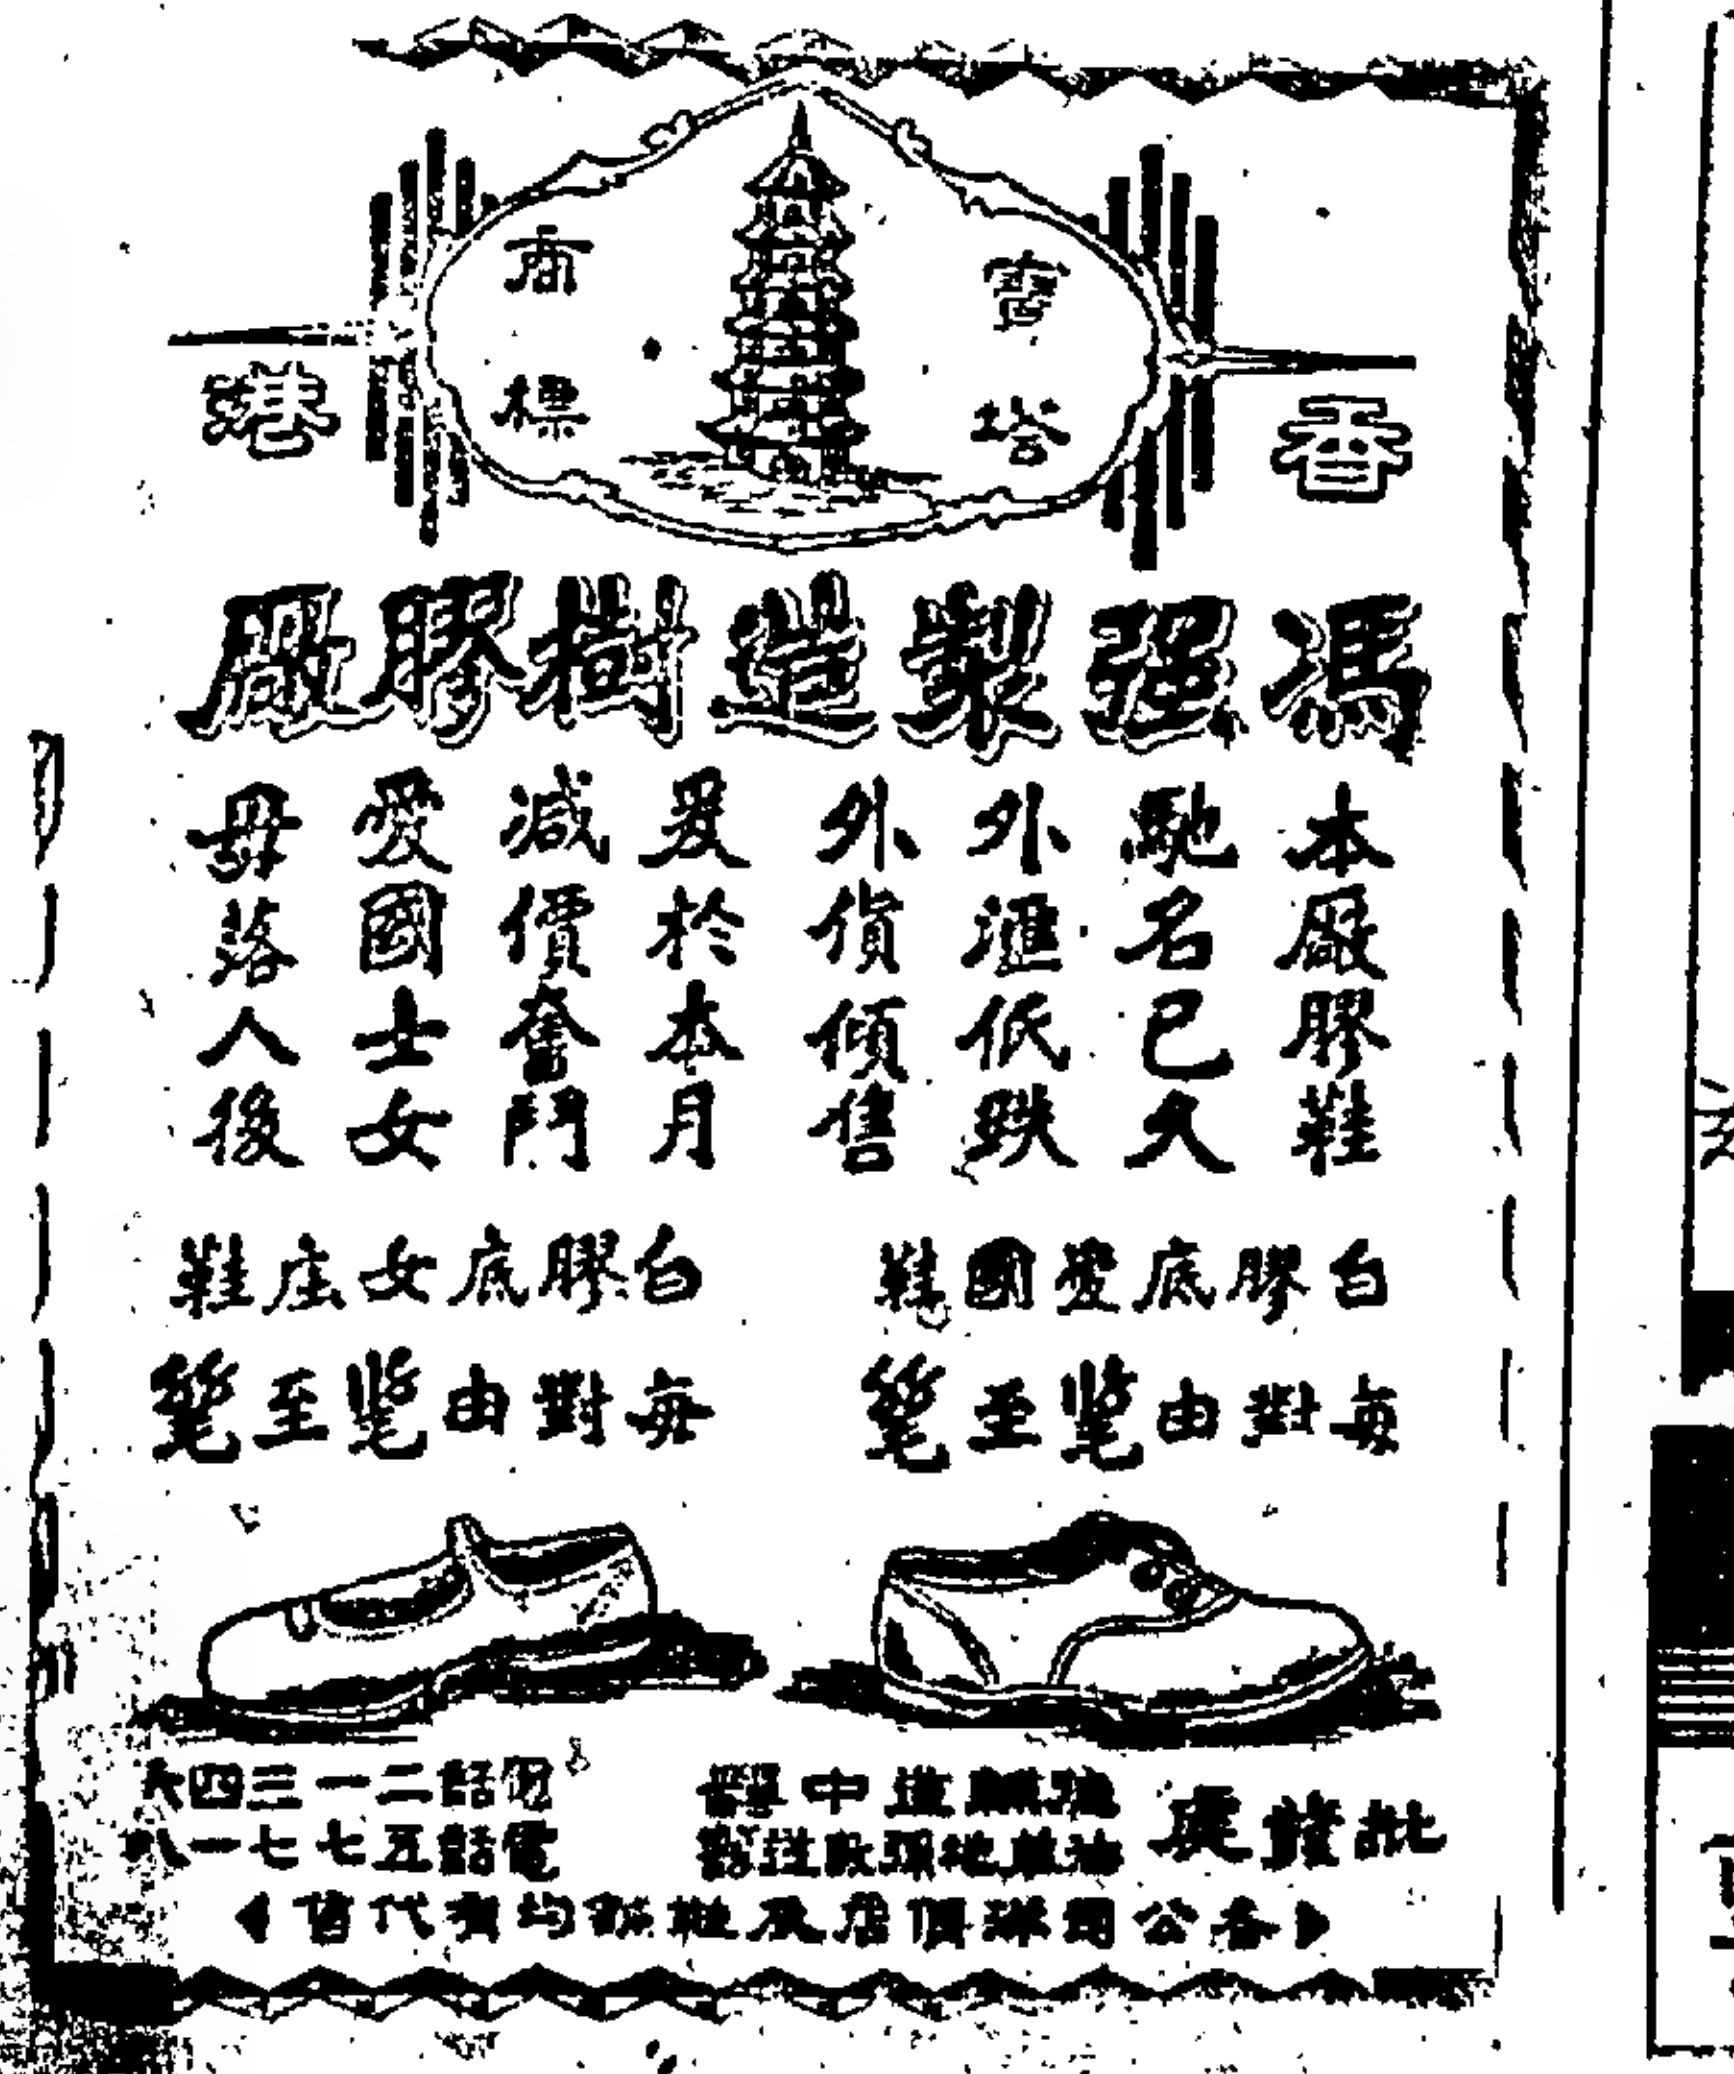 香港
寶塔
商標
馮强製造樹膠廠
本廠膠鞋
馳名已久
外滙低跌
外貨傾售
爰於本月
減價奮鬥
愛國士女
毋落人後
白膠底愛國鞋
每對由 至
白膠底女庄鞋
每對由 至
批發處
德輔道中
電話二一三四六
油蔴地彌敦道
電話五七七一八
各公司 及鞋 均有代售